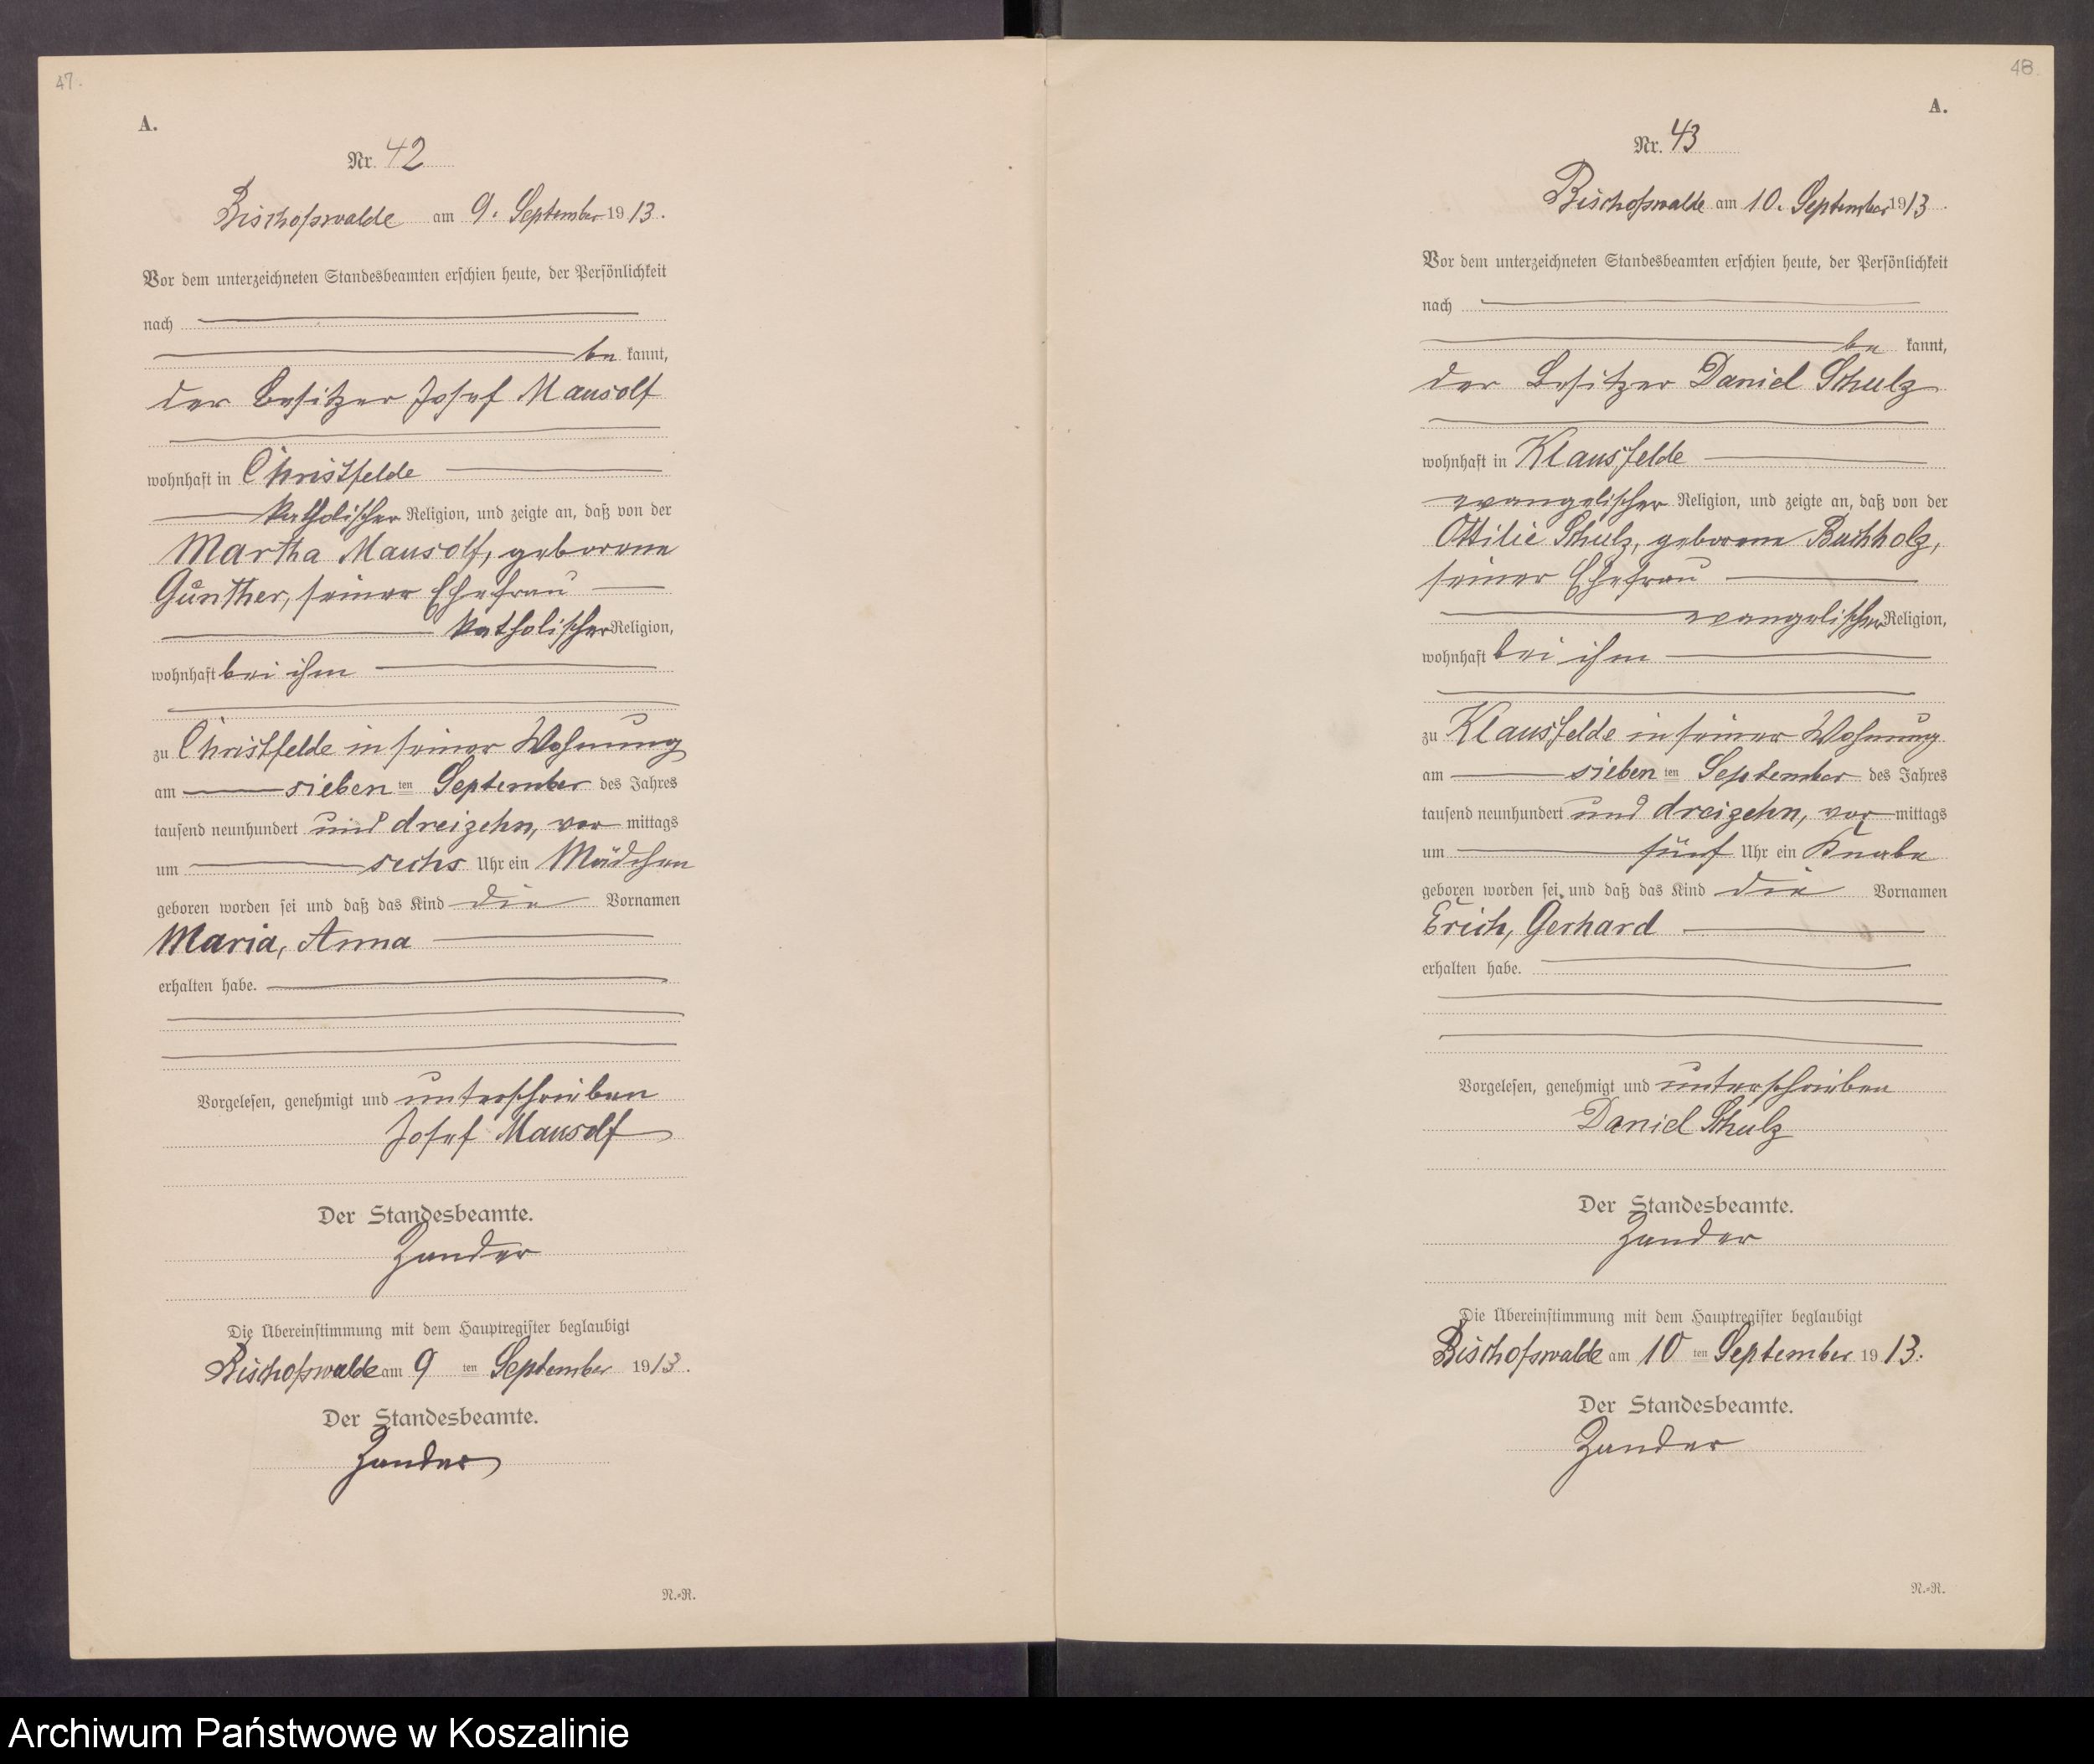 47.
A.
Nr. 42
Bischofswalde am 9. September 1913.
Vor dem unterzeichneten Standesbeamten erschien heute, der Persönlichkeit
nach
be kannt,
der Besitzer Josef Mausolf
wohnhaft in Christfelde
katholischer Religion, und zeigte an, daß von der
Martha Mausolf, geborene
Günther, seiner Ehefrau
katholischer Religion,
wohnhaft bei ihm
zu Christfelde in seiner Wohnung
am sieben ten September des Jahres
tausend neunhundert und dreizehn, vor mittags
um sechs Uhr ein Mädchen
geboren worden sei und daß das Kind die Vornamen
Maria, Anna
erhalten habe.
Vorgelesen, genehmigt und unterschrieben
Josef Mausolf
Der Standesbeamte.
Zander
Die Übereinstimmung mit dem Hauptregister beglaubigt
Bischofswalde am 9 ten September 1913.
Der Standesbeamte.
Zander
N.=R.
48.
A.
Nr. 43
Bischofswalde am 10. September 1913.
Vor dem unterzeichneten Standesbeamten erschien heute, der Persönlichkeit
nach
be kannt,
der Besitzer Daniel Schulz
wohnhaft in Klausfelde
evangelischer Religion, und zeigte an, daß von der
Ottilie Schulz, geborene Buchholz,
seiner Ehefrau
evangelischer Religion,
wohnhaft bei ihm
zu Klausfelde in seiner Wohnung
am sieben ten September des Jahres
tausend neunhundert und dreizehn, vor mittags
um fünf Uhr ein Knabe
geboren worden sei und daß das Kind die Vornamen
Erich, Gerhard
erhalten habe.
Vorgelesen, genehmigt und unterschrieben
Daniel Schulz
Der Standesbeamte.
Zander
Die Übereinstimmung mit dem Hauptregister beglaubigt
Bischofswalde am 10 ten September 1913.
Der Standesbeamte.
Zander
N.=R.
Archiwum Państwowe w Koszalinie